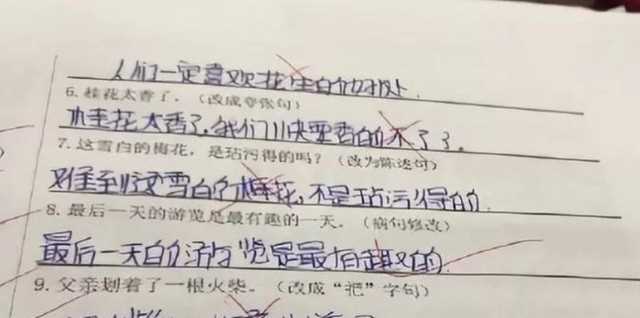 人们一定喜欢花生的好处.
6. 桂花太香了。（改成夸张句）
桂花太香了,我们快要香的不了了.
7. 这雪白的梅花，是玷污得的吗？（改为陈述句）
这雪白的梅花,不是玷污得的.
8. 最后一天的游览是最有趣的一天。（病句修改）
最后一天的游览是最有趣的.
9. 父亲划着了一根火柴。（改成“把”字句）